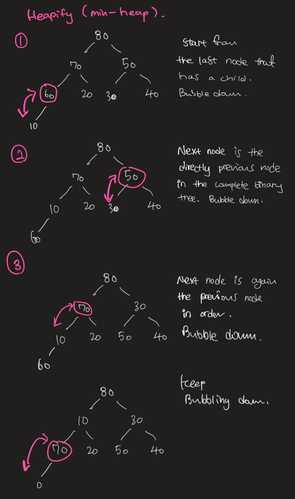 Heapify (min-heap).
①
80
70 50
60 20 30 40
10
Start from
the last node that
has a child.
Bubble down.
②
80
70 50
10 20 30 40
60
Next node is the
directly previous node
in the complete binary
tree. Bubble down.
③
80
70 30
10 20 50 40
60
Next node is again
the previous node
in order.
Bubble down.
80
10 30
70 20 50 40
0
keep
Bubbling down.